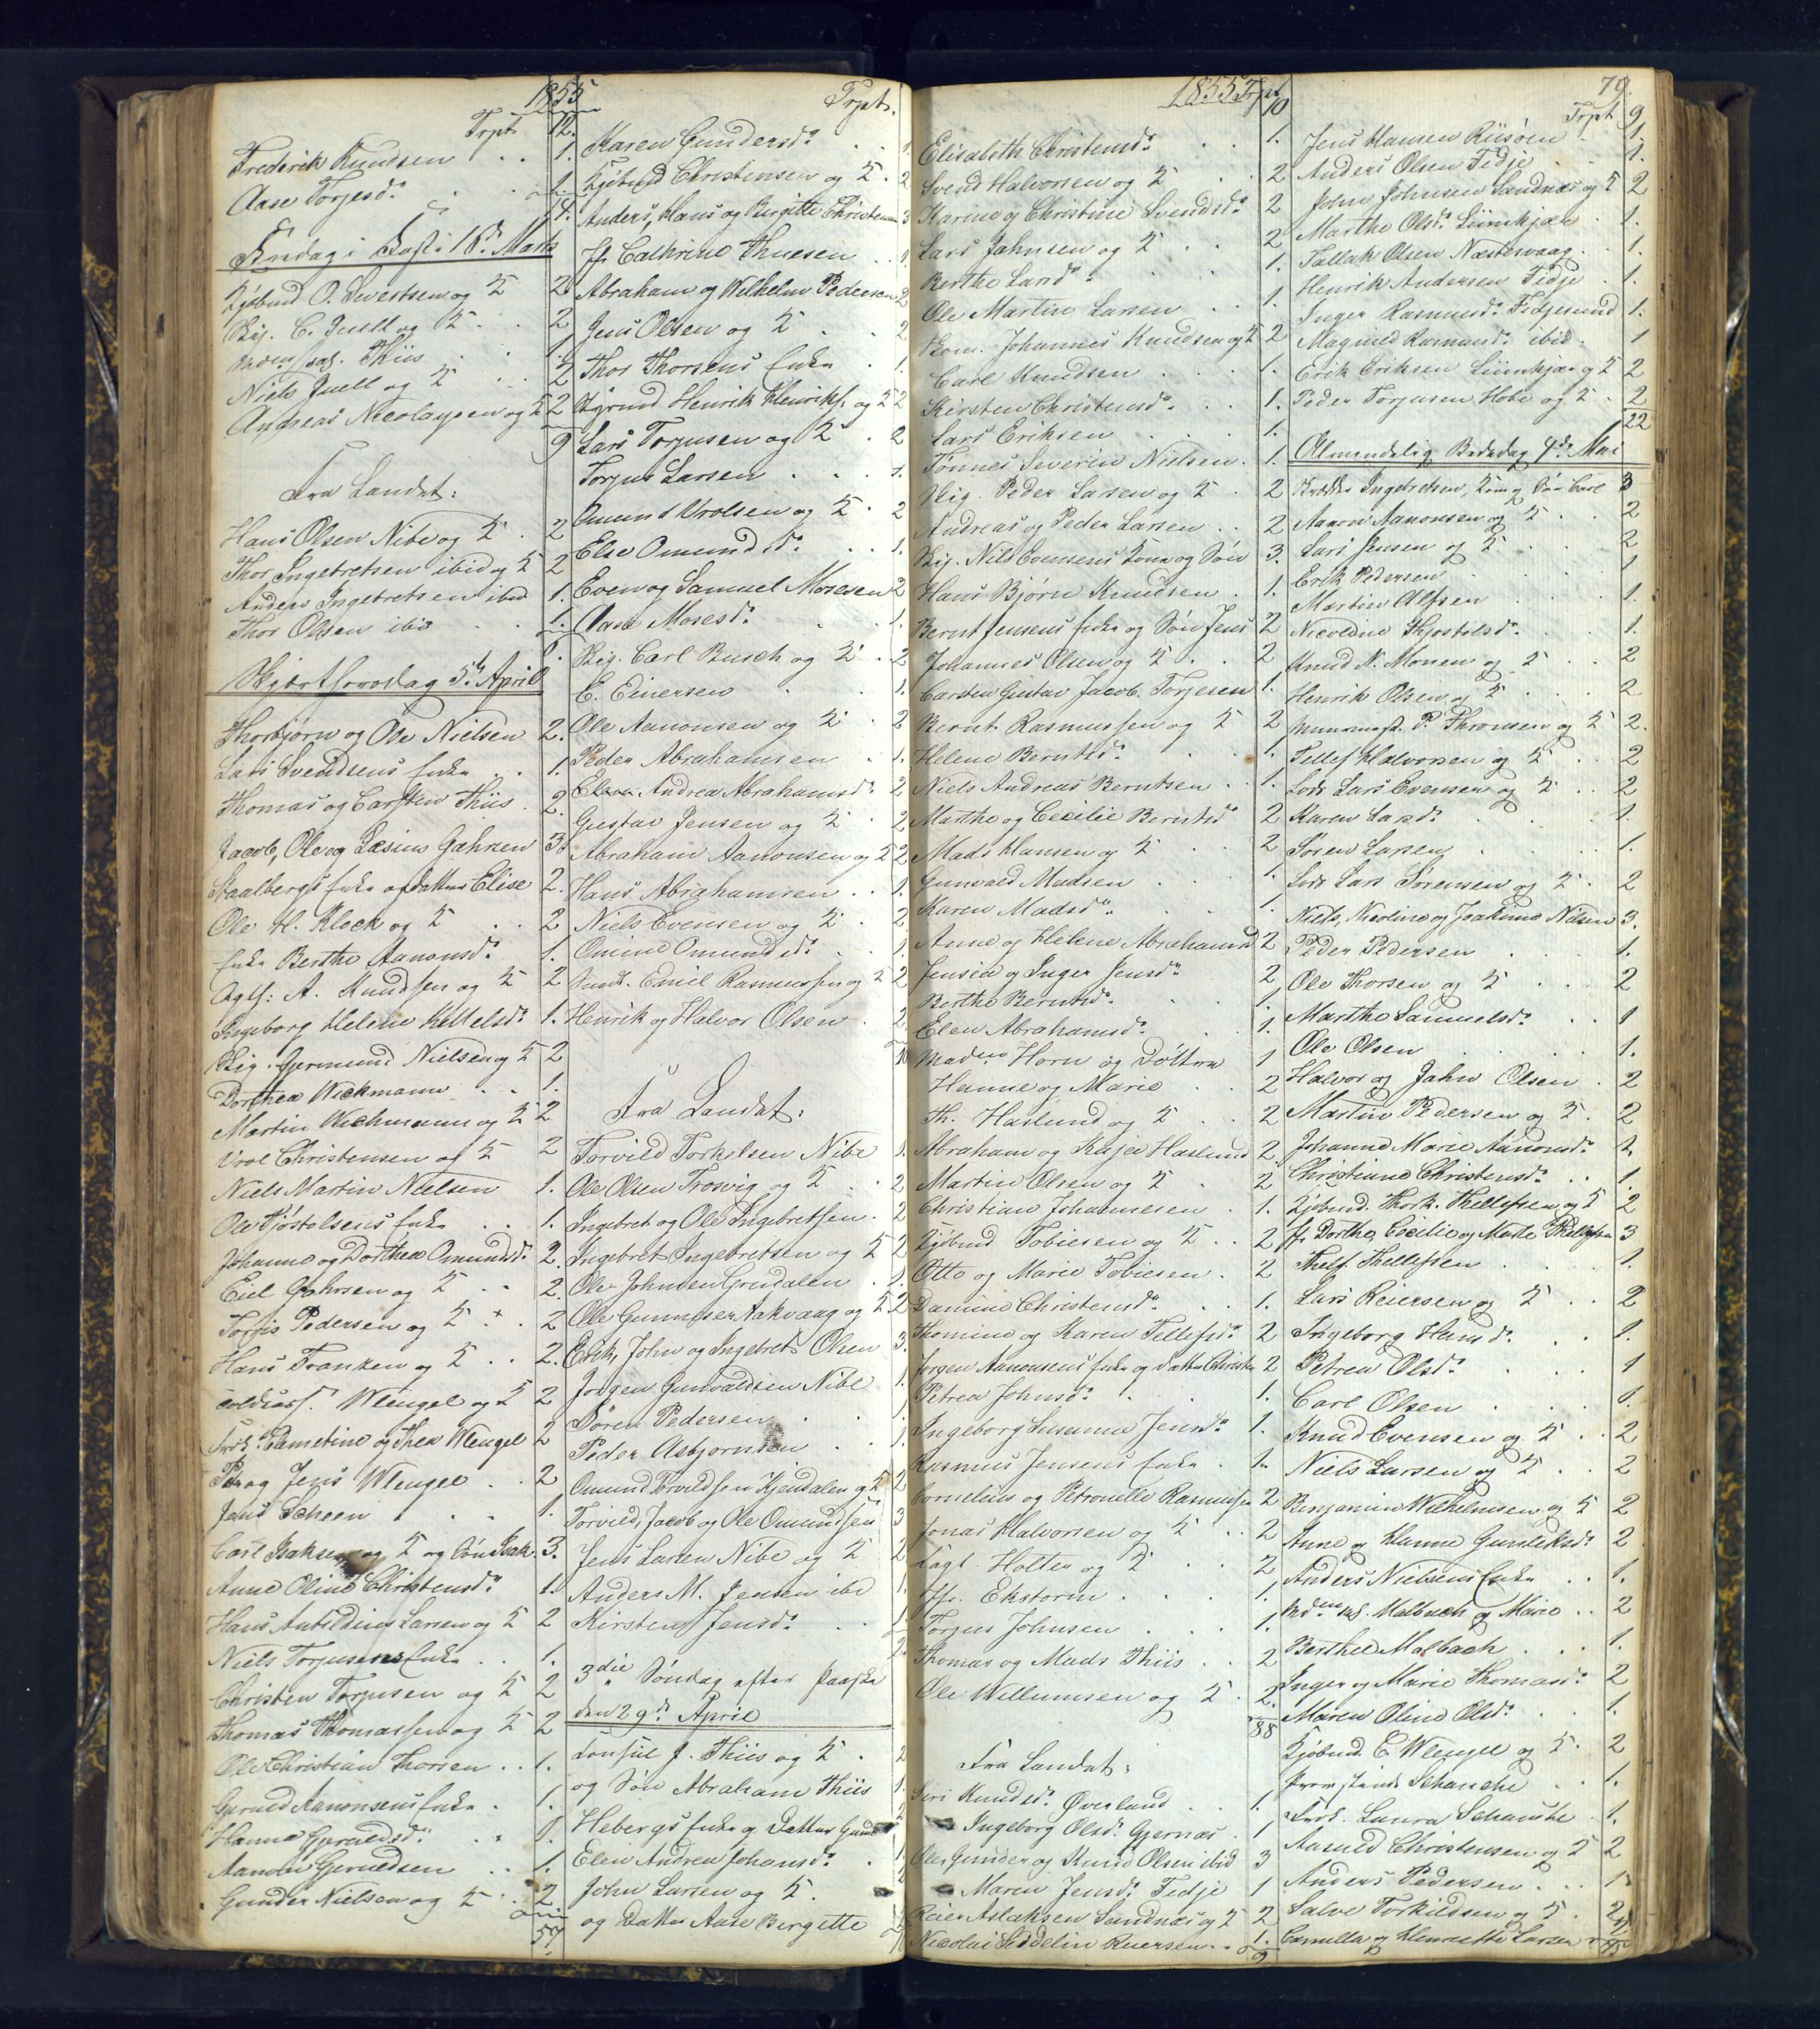 1855
Trpt. 12.
Frederik Knudsen . . 1.
Aase Torjesd. . . 1.
14.
Fredag i Faste 16de Marts
Kjøbmd O. Sivertsen og K 2
Skip. C. Juell og K . . 2
Niels Juell og K . . 2
Andreas Nicolaysen og K 2
9
Fra Landet:
Hans Olsen Nibe og K . 2
Thor Ingebretsen ibid og K 2
Anders Ingebretsen ibid 1.
Thor Olsen ibid . . 1.
Skjærthorsdag 5te April
Thorbjørn og Ole Nielsen 2.
Lars Svendsens Enke . . 1.
Thomas og Carsten Thiis . 2.
Jacob, Ole og Gahrsen 3.
Staalbergs Enke og datter Elise 2.
Ole H. Klock og K . . 2
Enke Berthe Aanonsd. 1.
Agts: A. Knudsen og K 2
Ingeborg Helene Kittelsd. 1.
Skip. Germund Nielsen og K 2
Dorthea Wickmann . . 1.
Martin Wickmann og K 2
Vrol Christensen og K 2
Niels Martin Nielsen 1.
Ole Kjøstolsens Enke . . 1.
Johanne og Dorthea Omundsd. 2.
Eiel Gahrsen og K . . 2.
Torjis Pedersen og K . . 2
Hans Franken og K . . 2.
Wleugel og K 2
Frøk. Elmetine og Thea Wleugel 2
Per og Jens Wleugel . 2
Jens Scheen . . . 1.
Carl Isaksen og K og Søn Isak 3.
Anne Oline Christensd. 1.
Hans Larsen og K 2
Niels Torjusens Enke . . 1.
Christen Torjusen og K 2
Thomas Thomassen og K 2
Ole Christian Thorsen . . 1.
Gjeruld Aanonsens Enke . 1.
Hanna Gjeruldsd. . 1.
Aanon Gjeruldsen . . 1.
Gunder Nielsen og K . . 2
57
Trpt.
Karen Gundersd. . . 1.
Kjøbmd Christensen og K . 2
Anders, Hans og Birgitte Christensen 3
Jfr Cathrine Thuesen . . 1.
Abraham og Wilhelm Pedersen 2
Jens Olsen og K . . 2
Thor Thorsens Enke . 1.
Styrmd Henrik Henriks. og K 2
Lars Torjusen og K . 2
Torjus Larsen . . . 1.
Omund Vrolsen og K . 2
Else Omundsd. . . 1.
Even og Samuel Mosesen 2
Aase Mosesd. . . 1.
Skip. Carl Busch og K . 2
E. Einersen . . 1.
Ole Aanonsen og K . 2
Peder Abrahamsen . 1.
Andrea Abrahamsd. 2
Gustav Jensen og K . 2
Abraham Aanonsen og K 2
Hans Abrahamsen . . 1.
Niels Evensen og K . 2
Omine Omundsd. . . 1.
Emil Rasmussen og K 2
Henrik og Halvor Olsen . 2.
Fra Landet:
Torvild Torkelsen Nibe 1.
Ole Olsen Trosvig og K . . 2
Ingebret og Ole Ingebretsen . 2
Ingebret Ingebretsen og K 2
Ole Johnsen Grendalen . 1.
Ole Gunnersen Hakvaag og K 2
Erik, John og Ingebret Olsen 3
Jørgen Gunvaldsen Nibe 1.
Søren Pedersen . . 1.
Peder Asbjørnsen . . 1.
Omund Torvildsen Kjendalen og K 2
Torvild, Jacob og Ole Omundsen 3
Jens Larsen Nibe og K 2
Anders M. Jensen ibd 1.
Kirsten Jensd. . . 1.
3die Søndag efter Paaske
den 29de April
Consul J. Thiis og K . 2
og Søn Abraham Thiis 1.
Hebergs Enke og Datter
Elen Andrea Johansd. . 1.
John Larsen og K . 2
og Datter Aase Birgitte
1855 Trpt. 10
Elisabeth Christensd. . . 1.
Svend Halvorsen og K . 2
Karine og Christine Svendsd. 2
Lars Jahnsen og K . . 2
Berthe Larsd. . . 1.
Ole Martin Larsen . . 1.
Kom. Johannes Knudsen og K 2
Carl Knudsen . . . 1.
Kirsten Christensd. . . 1.
Lars Eriksen . . . 1.
Tønnes Severin Nielsen . 1.
Skip. Peder Larsen og K . 2
Andreas og Peder Larsen . . 2
Skip. Nils Evensens Kone og Søn 3.
Hans Bjørn Knudsen . 1.
Bernt Jensens Enke og Søn Jens 2
Johannes Olsen og K . . 2
Carsten Gustav Jacob Torjesen 1.
Bernt Rasmussen og K 2
Helene Berntsd. . . 1.
Niels Andreas Berntsen . . 1.
Marthe og Cecilie Berntsd. 2
Mads Hansen og K . . 2
Gunvald Madsen . . . 1.
Karen Madsd. . . . 1.
Anne og Helene Abrahamsd. 2
Jensen og Inger Jensd. 2
Berthe Berntsd. . . 1.
Elen Abrahamsd. . . 1.
Madme Horn og Døttre 1
Hanne og Marie . . 2
Th. Haslund og K . . 2
Abraham og Kaja Haslund 2.
Martin Olsen og K . 2
Christian Johannesen . 1.
Kjøbmd Tobiesen og K . . 2
Otto og Marie Tobiesen . 2
Danine Christensd. . . 1.
Thomine og Karen Tellefsd. 2
Jørgen Aanonsens Enke og datter 2
Petrea Johnsd. . . 1.
Ingeborg Susanne Jensd. 1.
Rasmus Jensens Enke . 1.
Cornelius og Petronelle Rasmussen 2
Jonas Halvorsen og K . . 2
Holter og K . . 2
Jfr. Ekstorm . . . 1.
Torjus Johnsen . . . 1.
Thomas og Mads Thiis . . 2
Ole Willumsen og K . 2.
88
Fra Landet:
Siri Knudsd. Øverland . . 1.
Ingeborg Olsd. Gjernæs . 1
Ole, Gunder og Knud Olsen ibid 3
Maren Jensd. Fidje 1
Reier Aslaksen Sandnæs og K 2
Nicolai Reiersen . . 1.
9
79.
Trpt 9
Jens Hansen Riisøen . 1.
Anders Olsen Fidje . . 1.
John Johnsen Sandnæs og K 2
Marthe Olsd. Liinkjær . 1.
Tallak Olsen Næstesvaag . . 1.
Henrik Andersen Fidje . 1.
Inger Rasmusd. Fidjesund 1.
Magnild Rasmusd. ibid . 1
Erik Eriksen Liinkjær og K 2
Peder Torjusen Hobe og K . 2
22
Almindelig Bededag 4de Mai
Ingebretsen, Kone og Søn Carl 3
Aanon Aanonsen og K . . 2
Lars Jensen og K . . 2
Erik Pedersen . . . 1
Martin Alfsen . . . 1.
Nicoline Kjøstolsd. . . 1.
Knud N. Monen og K . . 2
Henrik Olsen og K . . . 2
P. Thronsen og K 2.
Tellef Halvorsen og K . . 2
Lods Lars Evensen og K . . 2
Karen Larsd. . . . 1.
Søren Larsen . . . 1.
Lods Lars Sørensen og K . 2
Niels, Nicoline og Joakime Nilsen 3.
Peder Pedersen . . . 1.
Ole Thorsen og K . . . 2
Marthe Samuelsd. . . 1
Ole Olsen . . . . 1.
Halvor og Jahn Olsen . 2
Martin Pedersen og K . 2
Johanne Marie Aanonsd. 1
Christiane Christensd. . . 1.
Kjøbmd. Thork. Thellefsen og K 2
Jfr. Dorthe, Cecilie og Marte Thellefsen 3
Thelf. Thellefsen . . 1.
Lars Reiersen og K . . 2
Ingeborg Hansd. . . 1.
Petrea Olsd. . . . 1
Carl Olsen . . . 1.
Knud Evensen og K . . 2
Niels Larsen og K . . 2
Benjamin Wilhelmsen og K 2
Anne og Hanne Gunleksd. 2
Anders Nielsens Enke . . 1.
Mdme sal. Malbach og Marie . . 2
Berthe Malbach . . . 1.
Inger og Marie Thomasd. 2
Maren Oline Olsd. . . 1.
Kjøbmd. C. Wleugel og K . 2
Schanche . . 1.
Frøk. Laura Schanche . 1.
Aanund Christensen og K 2
Anders Pedersen . . . 1
Salve Torkildsen og K . 2
Camilla og Henriette Larsen